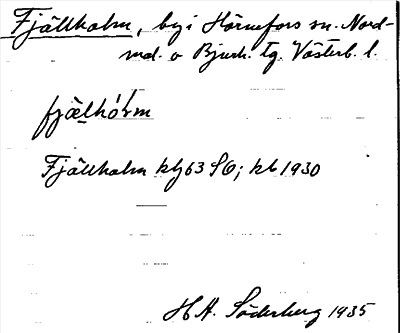 Fjällholm, by i Hörnefors sn. Nord-
md. o Bjurh. tg. Västerb. l.
fjælhólm
Fjällholm klj 63 SO; kb 1930
H. A. Söderberg 1935